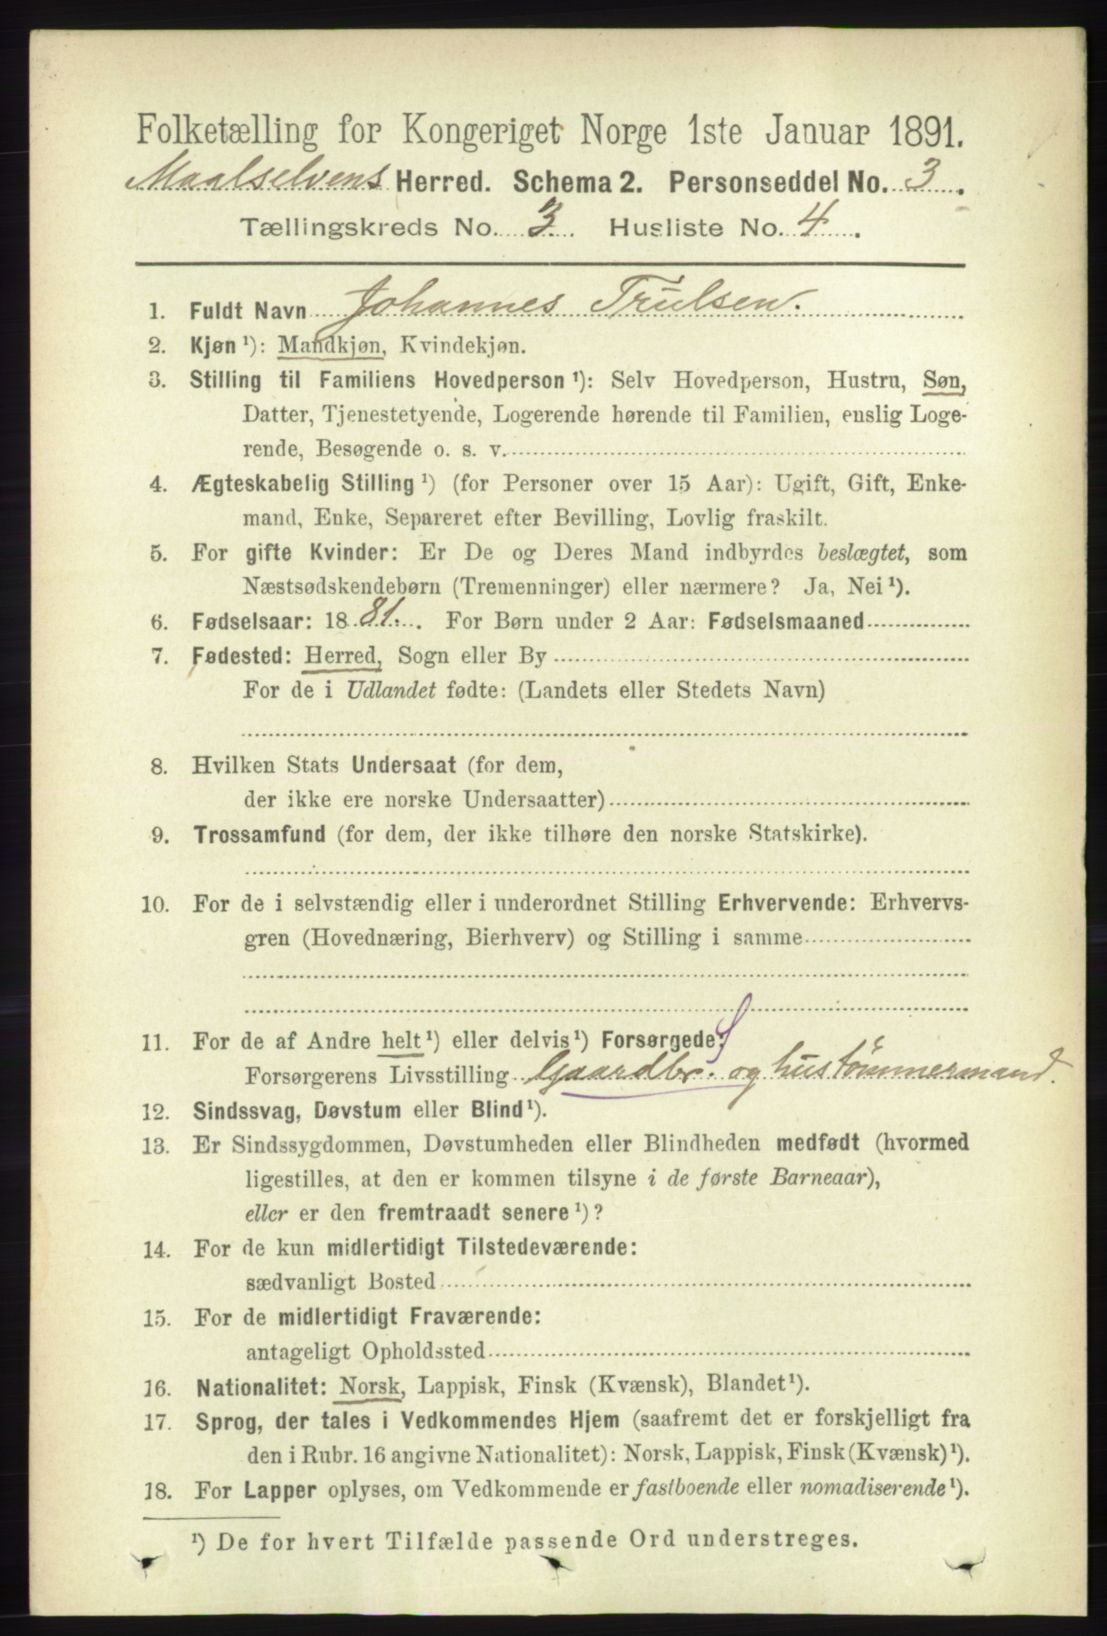 Folketælling for Kongeriget Norge 1ste Januar 1891.
Maalselvens Herred. Schema 2. Personseddel No. 3.
Tællingskreds No. 3. Husliste No. 4.
1. Fuldt Navn Johannes Trulsen.
2. Kjøn ¹): Mandkjøn, Kvindekjøn.
3. Stilling til Familiens Hovedperson ¹): Selv Hovedperson, Hustru, Søn,
Datter, Tjenestetyende, Logerende hørende til Familien, enslig Loge-
rende, Besøgende o. s. v.
4. Ægteskabelig Stilling ¹) (for Personer over 15 Aar): Ugift, Gift, Enke-
mand, Enke, Separeret efter Bevilling, Lovlig fraskilt.
5. For gifte Kvinder: Er De og Deres Mand indbyrdes beslægtet, som
Næstsødskendebørn (Tremenninger) eller nærmere? Ja, Nei ¹).
6. Fødselsaar: 1881. For Børn under 2 Aar: Fødselsmaaned
7. Fødested: Herred, Sogn eller By
For de i Udlandet fødte: (Landets eller Stedets Navn)
8. Hvilken Stats Undersaat (for dem,
der ikke ere norske Undersaatter)
9. Trossamfund (for dem, der ikke tilhøre den norske Statskirke).
10. For de i selvstændig eller i underordnet Stilling Erhvervende: Erhvervs-
gren (Hovednæring, Bierhverv) og Stilling i samme
11. For de af Andre helt ¹) eller delvis ¹) Forsørgede: S
Forsørgerens Livsstilling Gaardbr. og hustømmermand.
12. Sindssvag, Døvstum eller Blind ¹).
13. Er Sindssygdommen, Døvstumheden eller Blindheden medfødt (hvormed
ligestilles, at den er kommen tilsyne i de første Barneaar),
eller er den fremtraadt senere ¹)?
14. For de kun midlertidigt Tilstedeværende:
sædvanligt Bosted
15. For de midlertidigt Fraværende:
antageligt Opholdssted
16. Nationalitet: Norsk, Lappisk, Finsk (Kvænsk), Blandet ¹).
17. Sprog, der tales i Vedkommendes Hjem (saafremt det er forskjelligt fra
den i Rubr. 16 angivne Nationalitet): Norsk, Lappisk, Finsk (Kvænsk) ¹).
18. For Lapper oplyses, om Vedkommende er fastboende eller nomadiserende ¹).
¹) De for hvert Tilfælde passende Ord understreges.